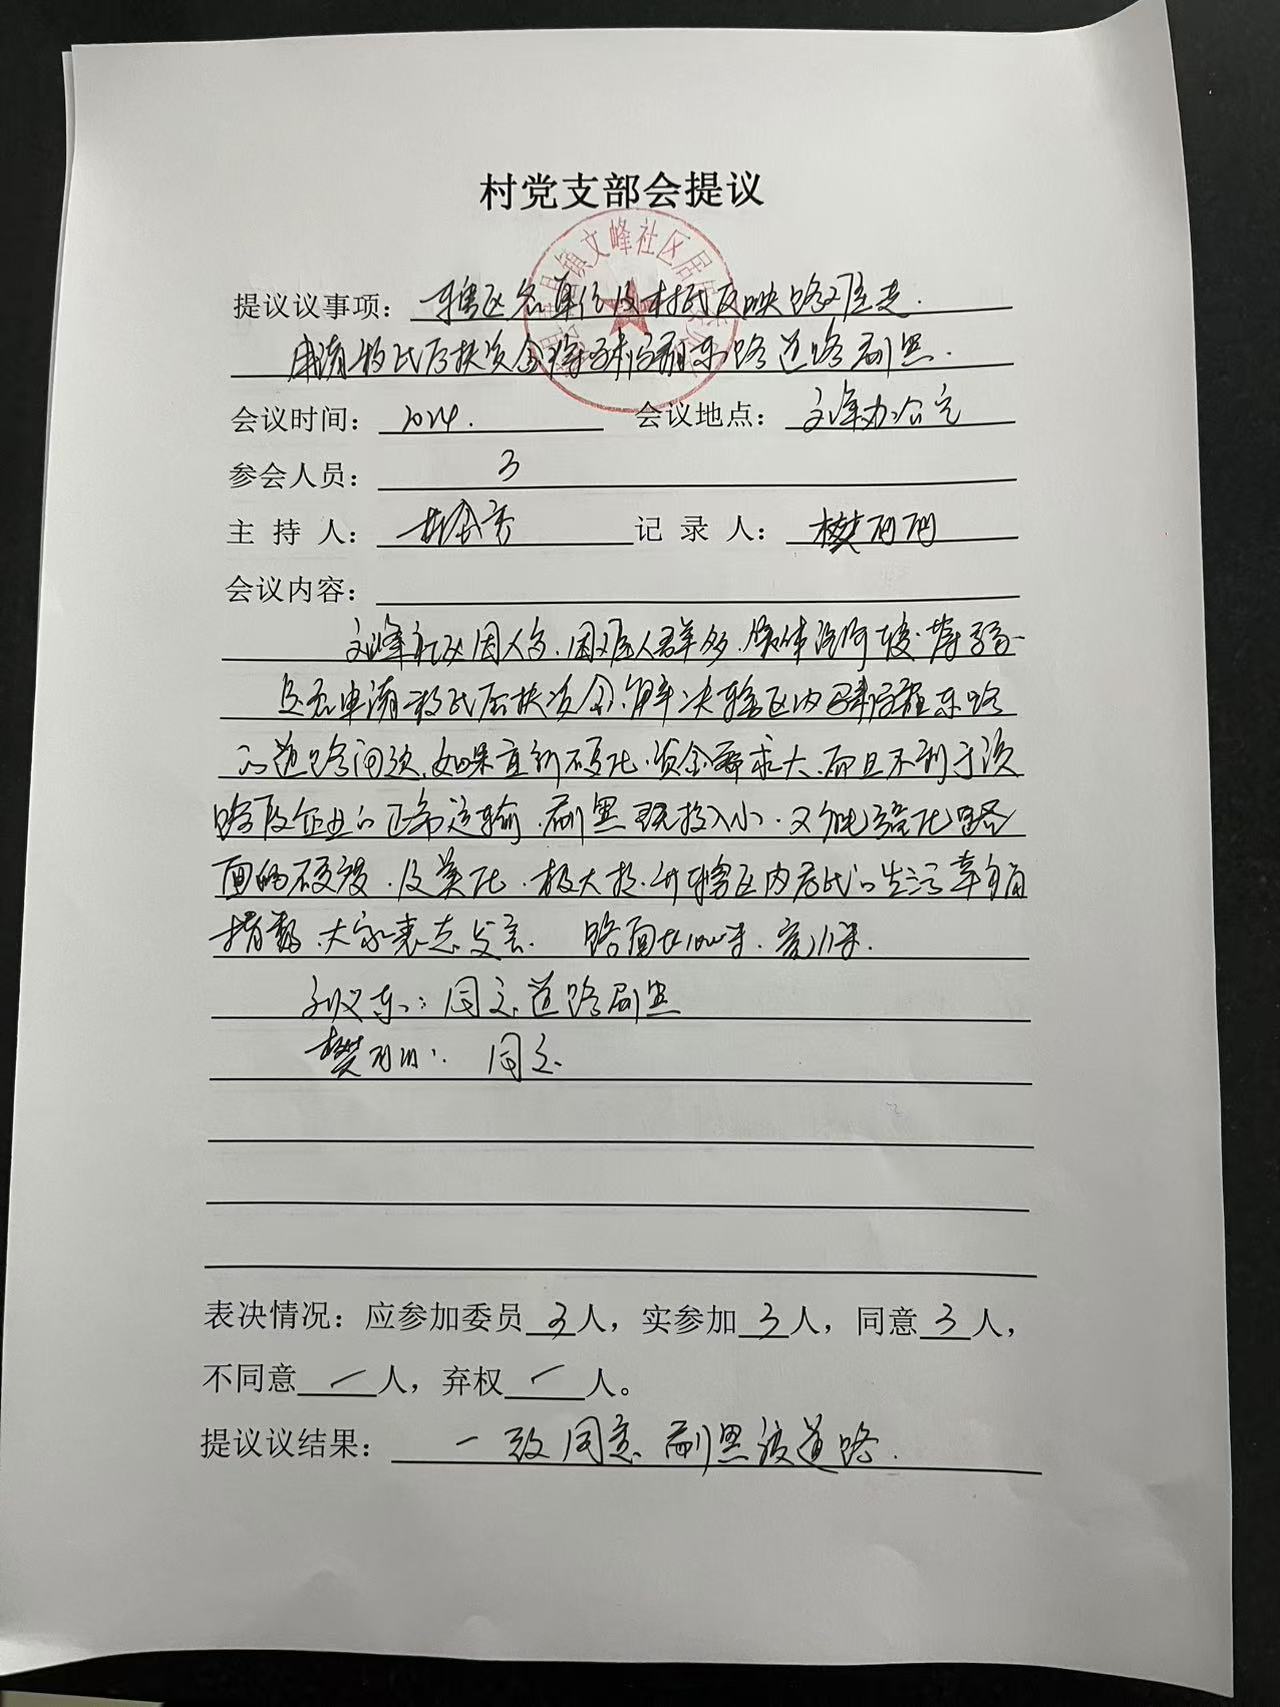 村党支部会提议
镇文峰社区居
提议议事项：辖区各单位及村民反映路难走.
申请移民后扶资金将 东路道路刷黑.
会议时间：2024. 会议地点：文峰办公室
参会人员：3
主持人： 记录人：樊丽丽
会议内容：
文峰社区因人多.困难人群多.集体经济
是否申请移民后扶资金.解决辖区内 东路
的道路问题.如果重新硬化.资金要求大.而且不利于该
路段企业的正常运输.刷黑既投入小.又能 化路
面的硬度.及美化.极大提升辖区内居民的生活幸福
指数.大家表态发言. 路面长 米.宽11米.
东：同意道路刷黑
樊丽丽：同意
表决情况：应参加委员3人，实参加3人，同意3人，
不同意/人，弃权/人。
提议议结果：一致同意刷黑该道路.